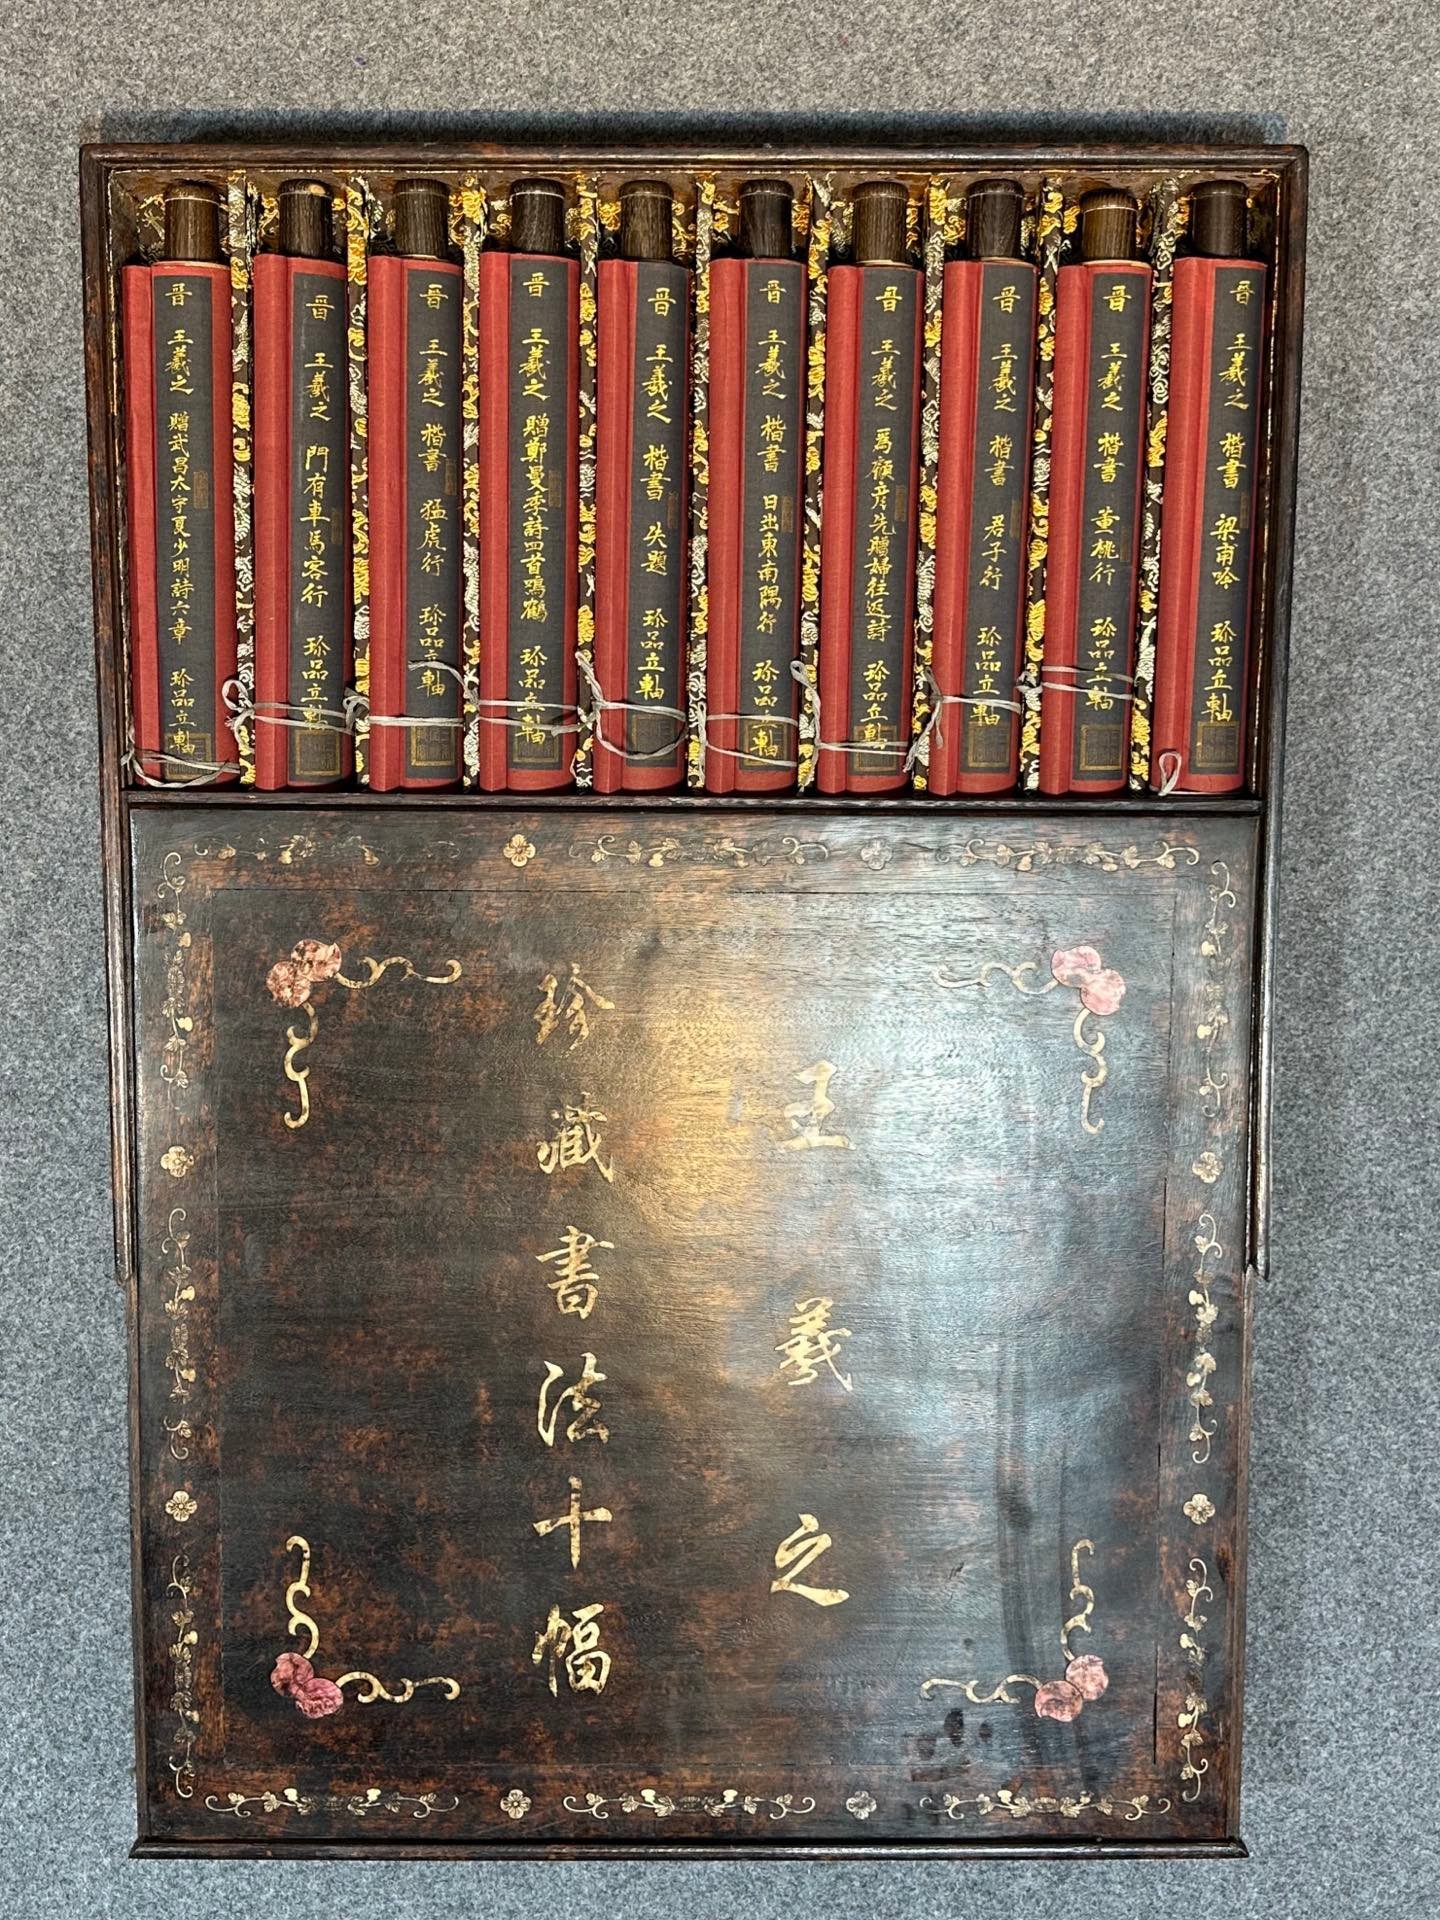 晋 王羲之 楷書 梁甫吟 珍品立軸
晋 王羲之 楷書 董桃行 珍品立軸
晋 王羲之 楷書 君子行 珍品立軸
晋 王羲之 爲顧彦先贈婦往返詩 珍品立軸
晋 王羲之 楷書 日出東南隅行 珍品立軸
晋 王羲之 楷書 失題 珍品立軸
晋 王羲之 贈鄭曼季詩四首鳴鶴 珍品立軸
晋 王羲之 楷書 猛虎行 珍品立軸
晋 王羲之 門有車馬客行 珍品立軸
晋 王羲之 贈武昌太守夏少明詩六章 珍品立軸
王羲之
珍藏書法十幅